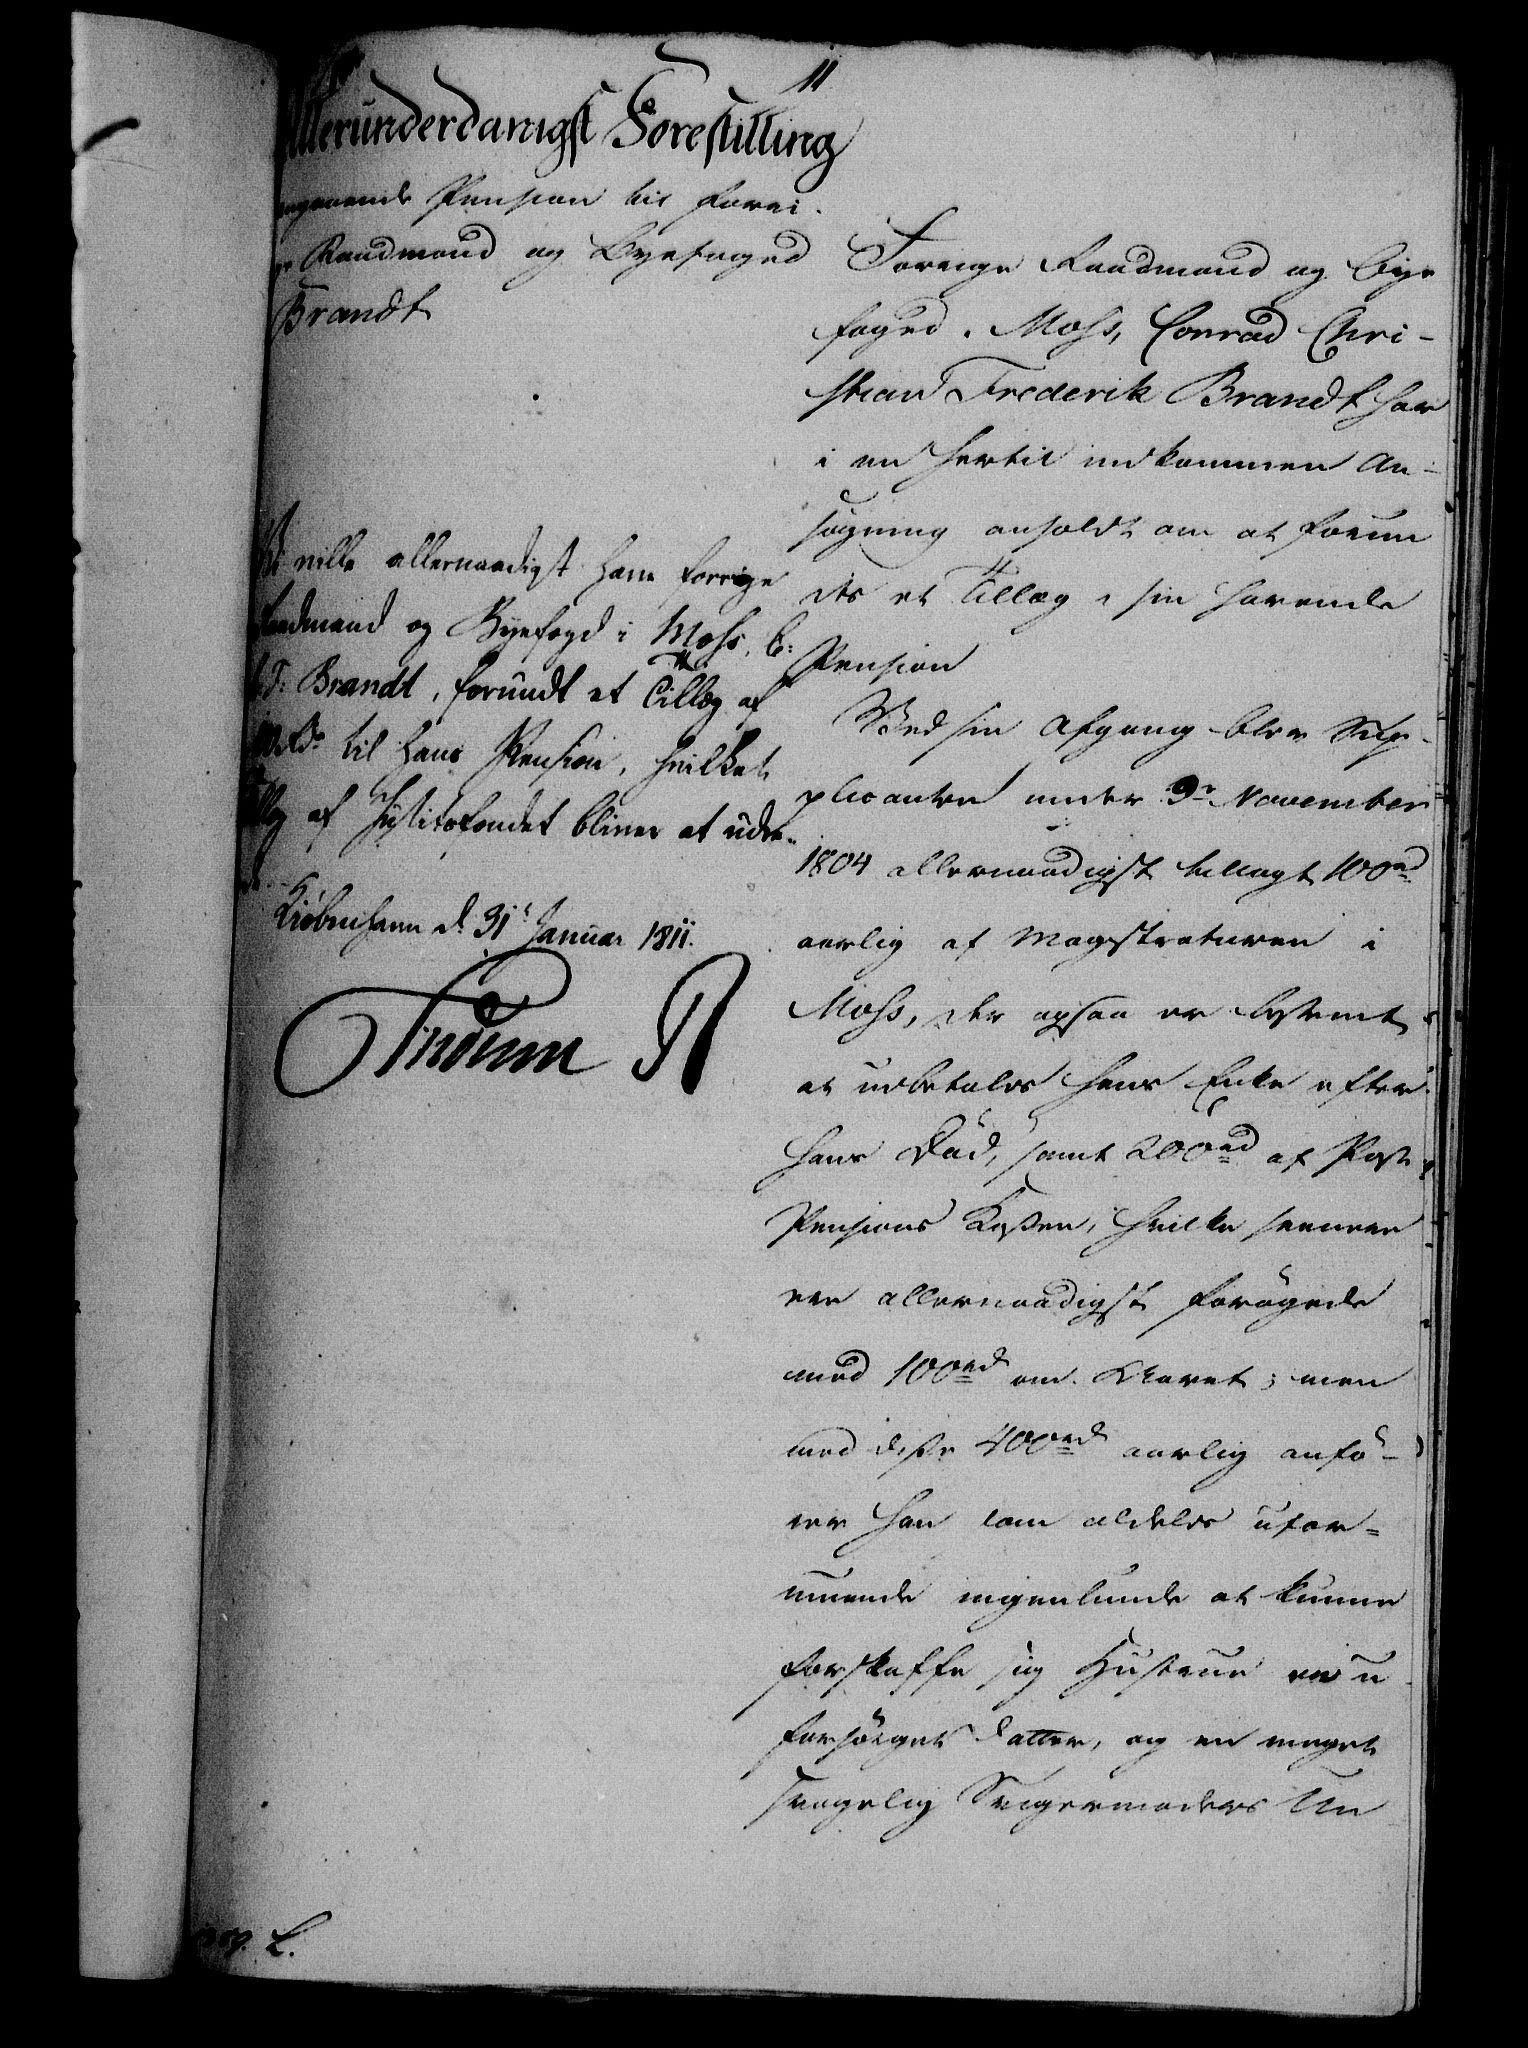 11
Allerunderdanigst Forestilling
angaaende Pension til forri-
ge Raadmand og Byefoged
Brandt
Vi ville allernaadigst have forrige
Raadmand og Byefoged i Moss, C:
C: F: Brandt, forundt et Tillæg af
til hans Pension, hvilket
Tillæg af Justitsfondet bliver at udre-
de.
Kiøbenhavn d. 31t Januar 1811.
Frederik R
Forrige Raadmand og Bye
foged i Moss, Conrad Chri-
stian Frederik Brandt har
i en hertil indkommen An-
søgning anholdt om at forun
des et Tillæg i sin havende
Pension
Ved sin Afgang blev Sup-
plicanten under 9de November
1804 allernaadigst tillagt 100rd
aarlig af Magistraturen i
Moss, der ogsaa er bestemt
at udbetales hans Enke efter
hans Död, samt 200rd af Post
Pensions Kassen, hvilke seenere
ere allernaadigst forøgede
med 100rd om Aaret; men
med disse 400rd aarlig anfö-
rer han som aldeles ufor-
muende ingenlunde at kunne
forskaffe sig Hustrue en u
forsörget Datter, og en meget
svagelig Svigermoders Un
L.